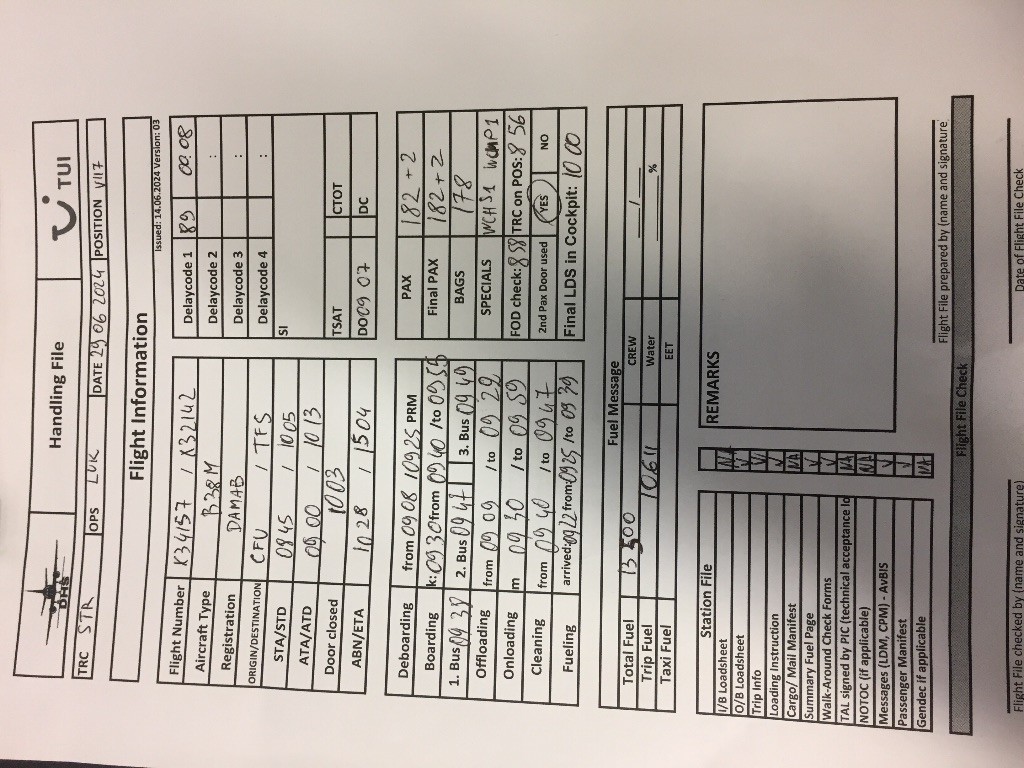 DHS
Handling File
TUI
TRC STR OPS LUK DATE 29 06 2024 POSITION V117
Flight Information
Issued: 14.06.2024 Version: 03
Flight Number X34157 / X32142 Delaycode 1 89 00:08
Aircraft Type B38M Delaycode 2 :
Registration DAMAB Delaycode 3 :
ORIGIN/DESTINATION CFU / TFS Delaycode 4 :
STA/STD 0845 / 1005 SI
ATA/ATD 0900 / 1013
Door closed 1003 TSAT CTOT
ABN/ETA 1028 / 1504 DO 09 07 DC
Deboarding from 09 08 / 0925 PRM PAX 182 + 2
Boarding k: 0930 from 0940 /to 0955 Final PAX 182 + 2
1. Bus 09 38 2. Bus 09 47 3. Bus 09 49 BAGS 178
Offloading from 09 09 / to 09 29 SPECIALS WCHS1
Onloading m 09 30 / to 09 59 FOD check: 8 58 TRC on POS: 8 56
Cleaning from 09 40 / to 09 47 2nd Pax Door used YES NO
Fueling arrived: 0922 from: 0925 /to 09 39 Final LDS in Cockpit: 10 00
Fuel Message
Total Fuel 13500 CREW /
Trip Fuel 10611 Water %
Taxi Fuel EET
Station File
I/B Loadsheet NA
O/B Loadsheet √
Trip Info √
Loading Instruction √
Cargo/ Mail Manifest NA
Summary Fuel Page √
Walk-Around Check Forms √
TAL signed by PIC (technical acceptance lo NA
NOTOC (if applicable) NA
Messages (LDM, CPM) - AvBIS √
Passenger Manifest √
Gendec if applicable NA
REMARKS
Flight File prepared by (name and signature)
Flight File Check
Flight File checked by (name and signature)
Date of Flight File Check